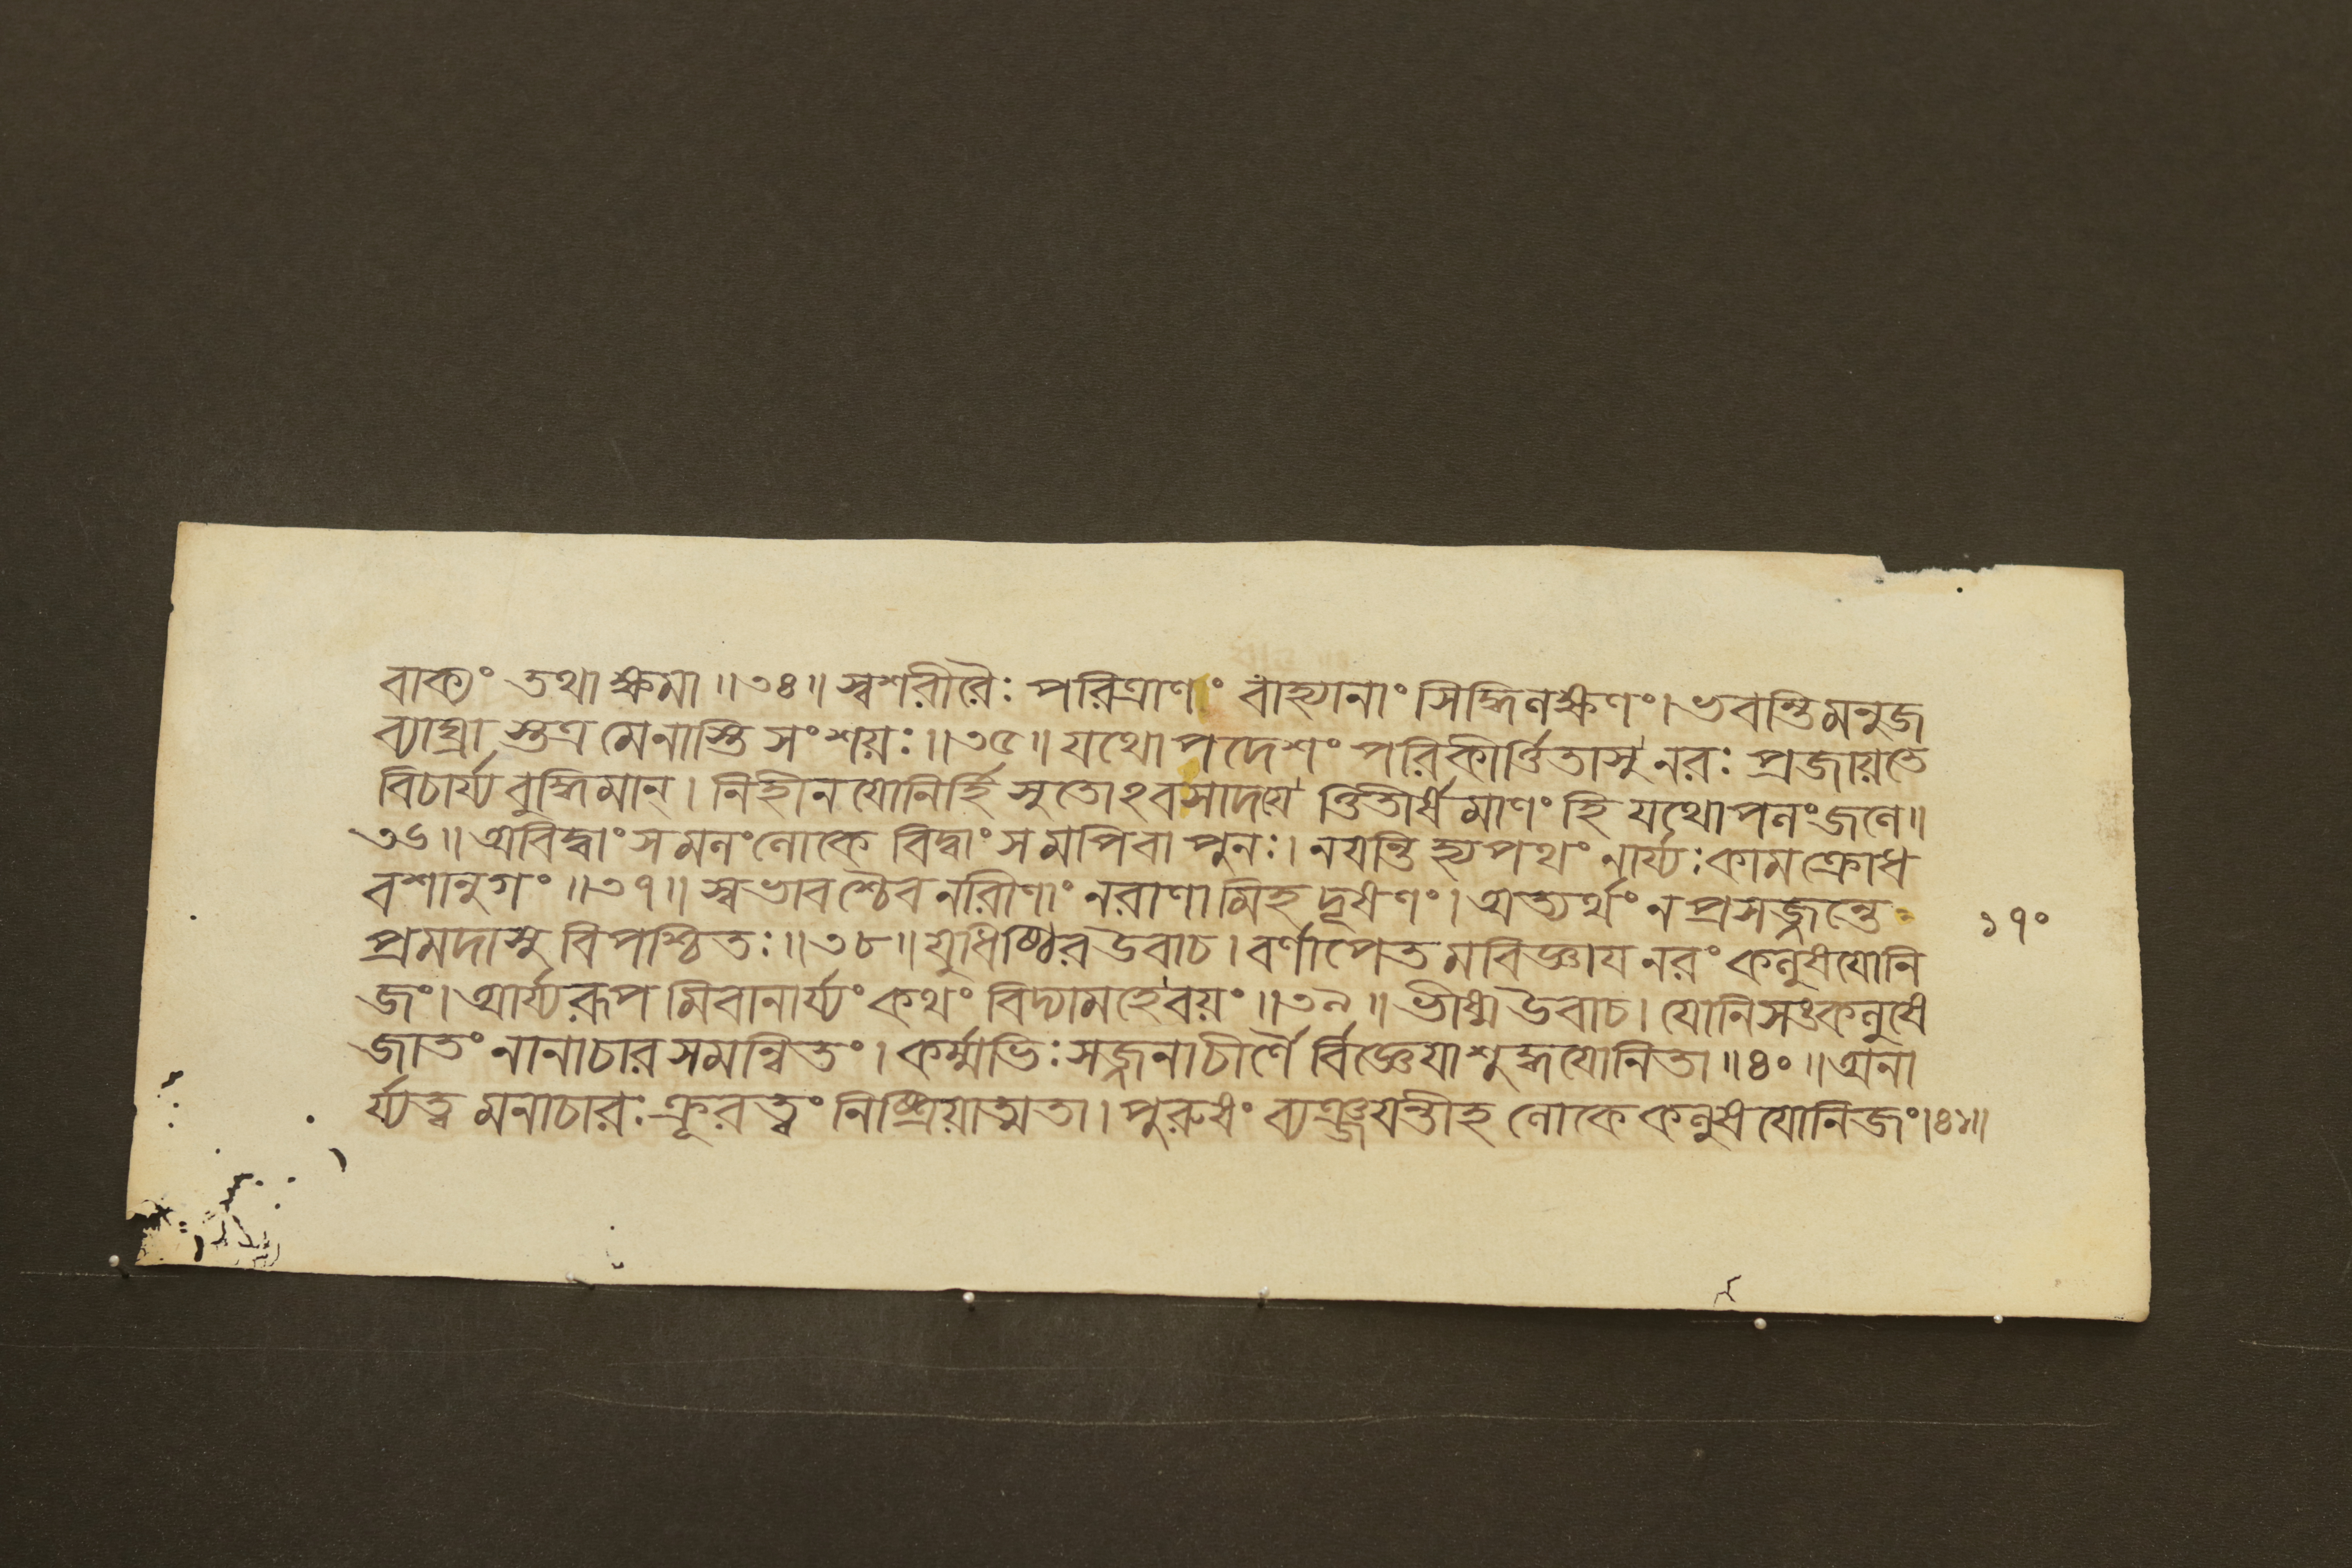 বাক্যং তথা ক্ষমা ॥৩৪॥ স্বশরীরৈঃ পরিত্রাণং বাহ্যানাং সিদ্ধিলক্ষণং। ভবন্তি মনুজ
ব্যাঘ্রা স্তত্র মেনাস্তি সংশয়ঃ ॥৩৫॥ যথোপদেশং পরিকীর্ত্তিতাসু নরঃ প্রজায়তে
বিচার্য্য বুদ্ধিমান্। নিহীনযোনির্হি সুতোঽবসাদয়ে ত্তিতীর্ষমাণং হি যথোপলং জলে॥
৩৬॥ অবিদ্বাংসমলং লোকে বিদ্বাংসমপি বা পুনঃ। নয়ন্তি হ্যপথং নার্য্যঃ কামক্রোধ
বশানুগং ॥৩৭॥ স্বভাবশ্চৈব নরীণাং নরাণামিহ দূষণং। অত্যর্থং ন প্রসজ্জন্তে
প্রমদাসু বিপশ্চিতঃ॥৩৮॥ যুধিষ্ঠির উবাচ। বর্ণাপেতমবিজ্ঞায নরং কলুষযোনি
জং। আর্য্যরূপমিবানার্য্যং কথং বিদ্যামহে বয়ং ॥৩৯॥ ভীষ্ম উবাচ। যোনিসঙ্কলুষে
জাতং নানাচারসমন্বিতং। কর্ম্মভিঃ সজ্জনাচীর্ণৈ র্বিজ্ঞেযা শুদ্ধযোনিতা ॥৪০॥ অনা
র্য্যত্ব মনাচারঃ ক্রূরত্বং নিষ্ক্রিয়াত্মতা। পুরুষং ব্যঞ্জয়ন্তীহ লোকে কলুষযোনিজং।৪১॥
১৭০